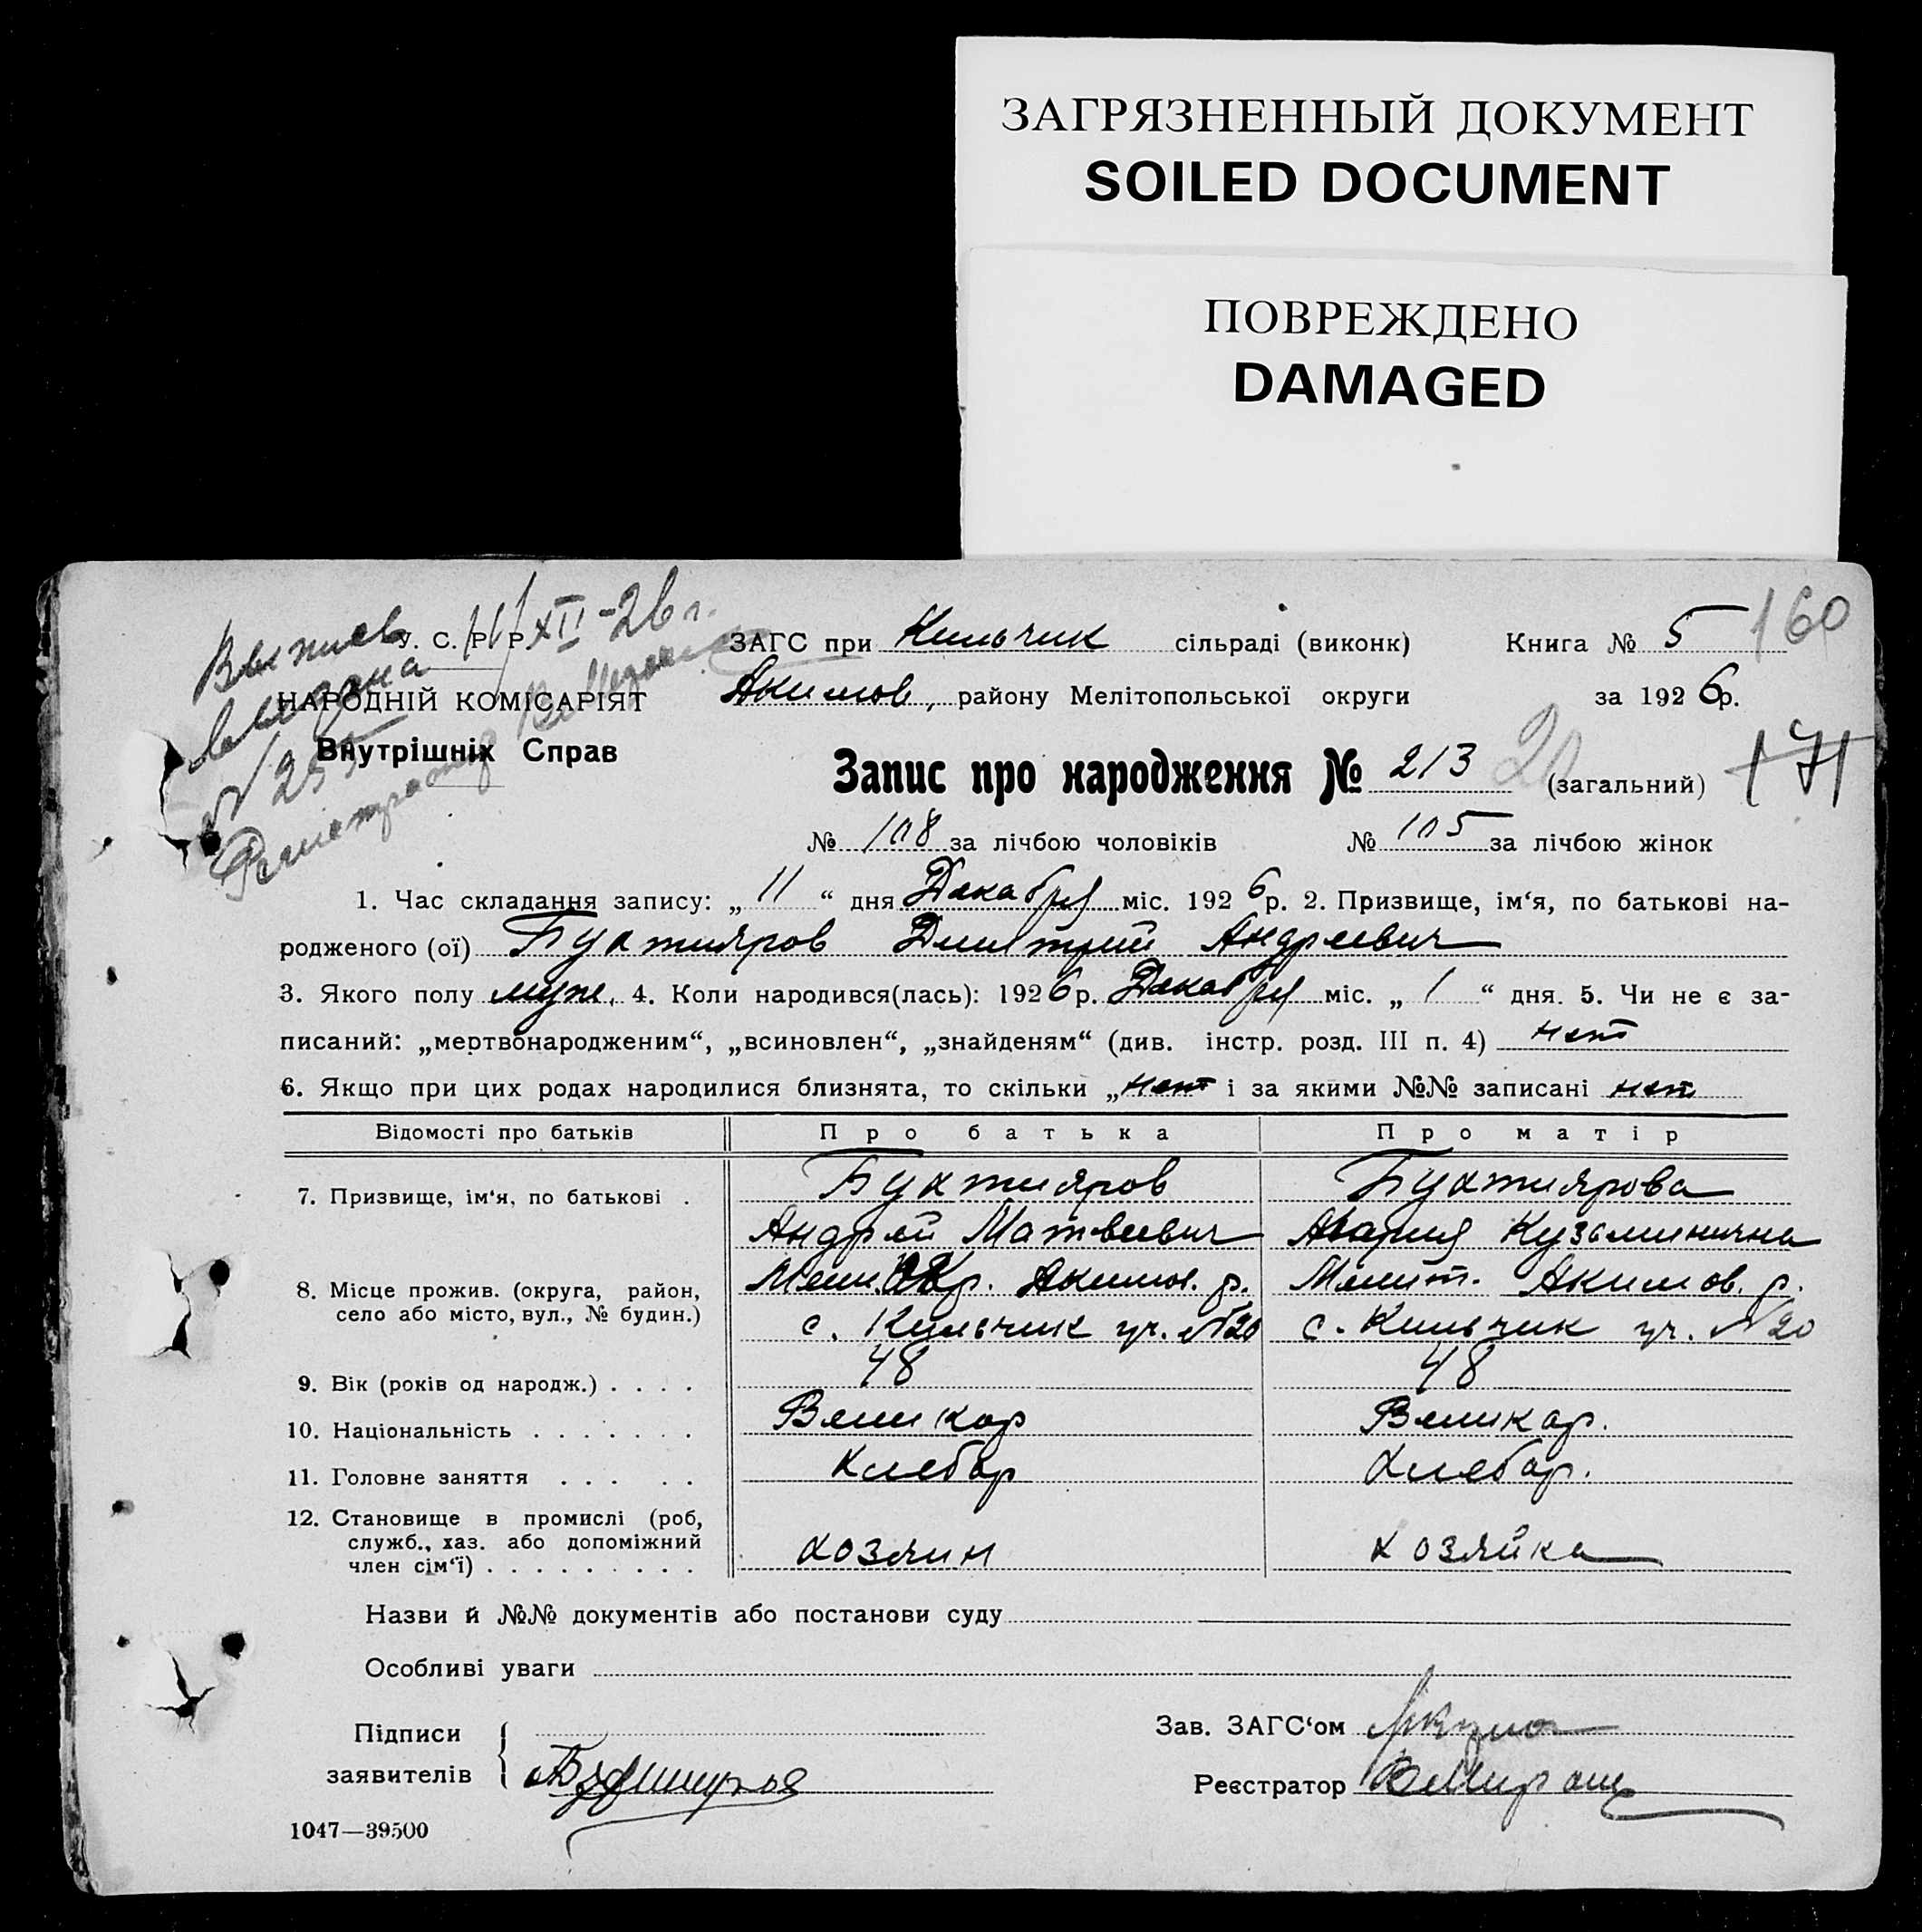 ЗАГРЯЗНЕННЫЙ ДОКУМЕНТ
SOILED DOCUMENT
ПОВРЕЖДЕНО
DAMAGED
160
У. С. Р. Р.
НАРОДНІЙ КОМІСАРІЯТ
Внутрішніх Справ
XII-26 г.
ЗАГС при Кильчик сільраді (виконк) Книга № 5
Акимов, району Мелітопольської округи за 1926р.
Запис про народження № 213 (загальний)
20
171
№ 108 за лічбою чоловіків № 105 за лічбою жінок
1. Час складання запису: „ 11 “ дня Декабря міс. 1926р. 2. Призвище, ім‘я, по батькові на-
родженого (ої) Бухтияров Дмитрий Андреевич
3. Якого полу муж. 4. Коли народився(лась): 1926р. Декабря міс. „ 1 “ дня. 5. Чи не є за-
писаний: „мертвонародженим“, „всиновлен“, „знайденям“ (див. інстр. розд. III п. 4) нет
6. Якщо при цих родах народилися близнята, то скільки „нет і за якими №№ записані нет
Відомості про батьків Про батька Про матір
7. Призвище, ім‘я, по батькові . Бухтияров Бухтиярова
Андрей Матвеевич Мария Кузьминична
8. Місце прожив. (округа, район, Мели. Окр. Акимов. р. Мелит. Акимов. р.
село або місто, вул., № будин.) с. Кильчик уч. №20 с. Кильчик уч. №20
9. Вік (років од народж.) . . . . 48 48
10. Національність . . . . . . . Великор Великор.
11. Головне заняття . . . . . Хлебор Хлебор.
12. Становище в промислі (роб,
служб., хаз. або допоміжний
член сім‘ї) . . . . . . . . . хозяин хозяйка
Назви й №№ документів або постанови суду
Особливі уваги
Підписи
заявителів
Зав. ЗАГС‘ом
Реєстратор
1047—39500